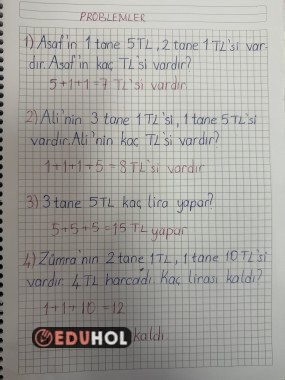 PROBLEMLER
1) Asaf'ın 1 tane 5TL, 2 tane 1TL'si var-
dır. Asaf'ın kaç TL'si vardır?
5+1+1=7 TL'si vardır
2) Ali'nin 3 tane 1TL'si, 1 tane 5TL'si
vardır. Ali'nin kaç TL'si vardır?
1+1+1+5=8TL'si vardır
3) 3 tane 5TL kaç lira yapar?
5+5+5=15 TL yapar
4) Zümra'nın 2 tane 1TL, 1 tane 10TL'si
vardır. 4TL harcadı. Kaç lirası kaldı?
1+1+10=12
EDUHOL kaldı